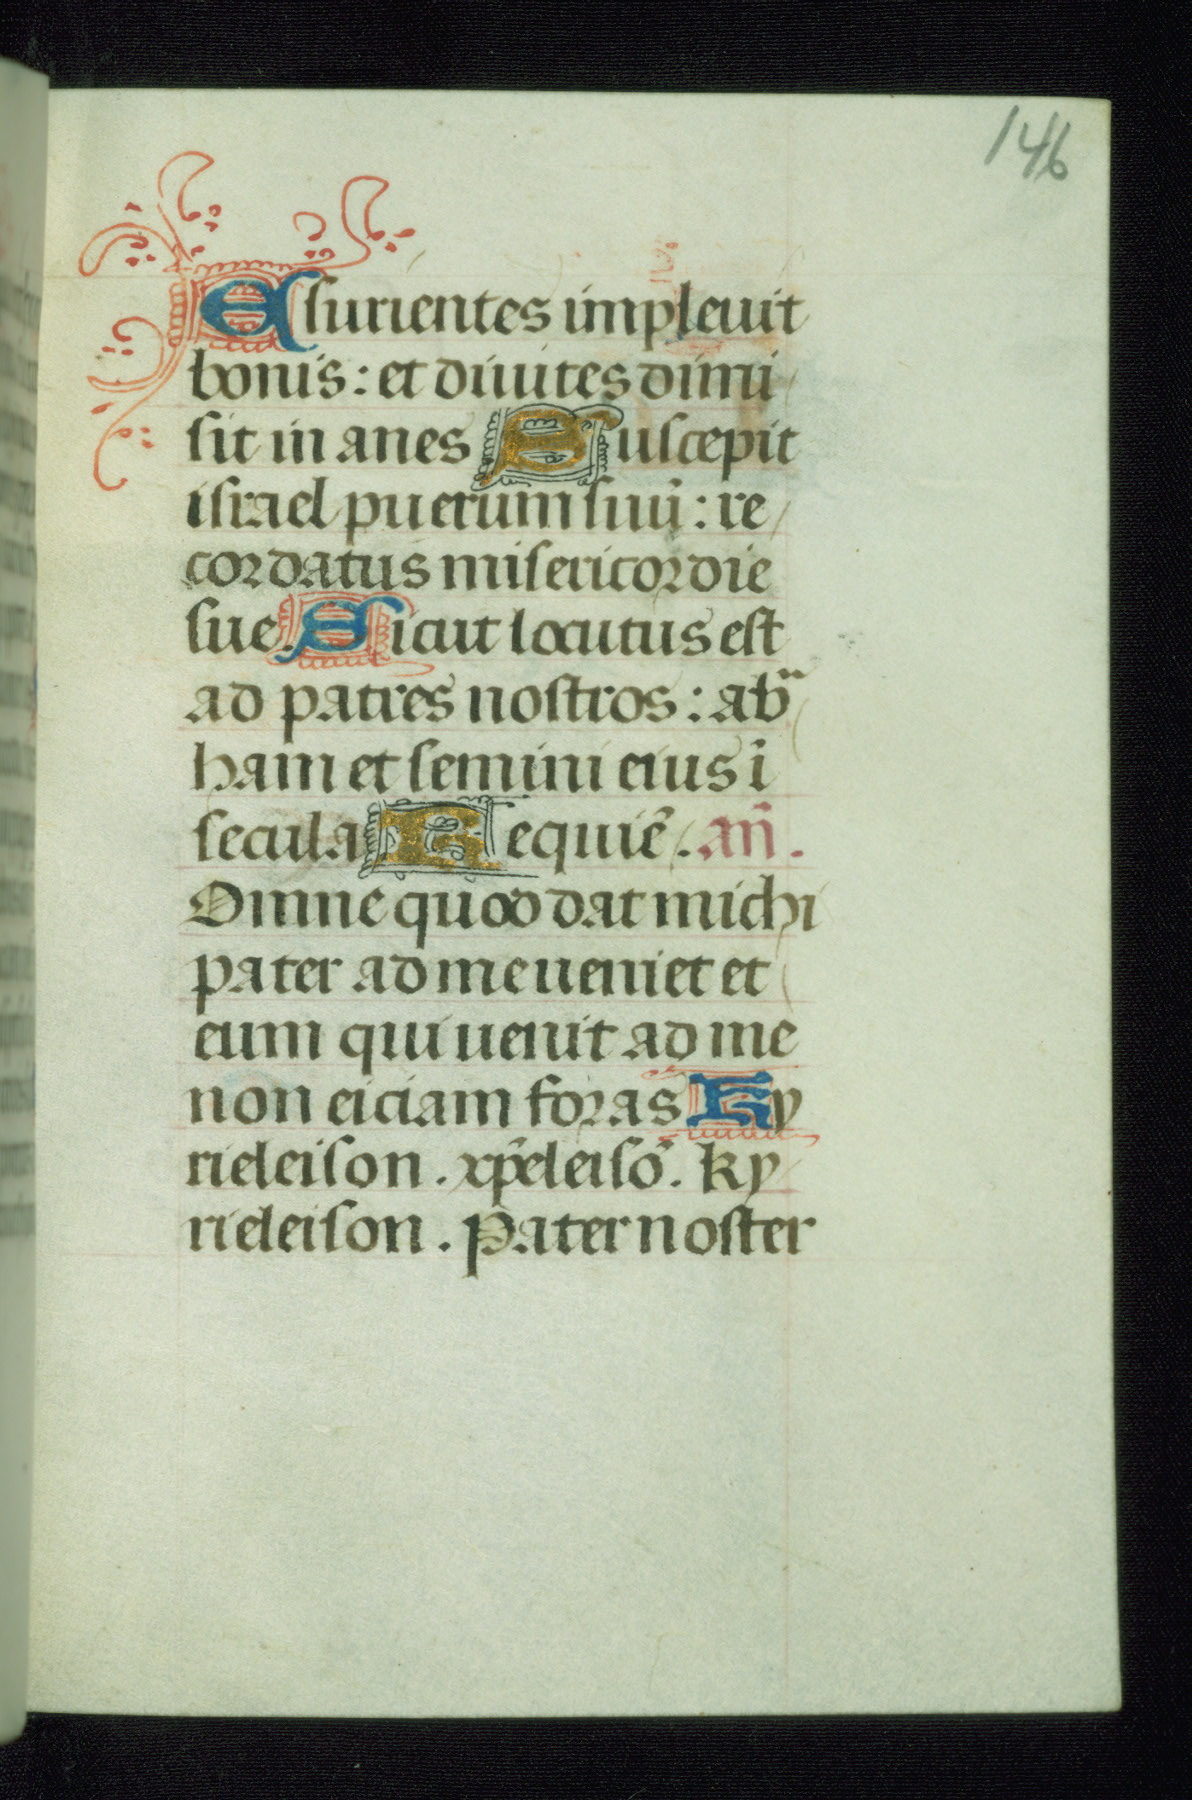 146
Esurientes impleuit
bonis: et diuites dimi
sit in anes Suscepit
israel puerum suū: re
cordatus misericordie
sue. Sicut locutus est
ad patres nostros: ab̈
ham et semini eius ī
secula Requiē. añ.
Omne quod dat michi
pater ad me ueniet et
eum qui uenit ad me
non eiciam foras Ky
rieleison. xp̄eleisō. ky
rieleison. Pater noster